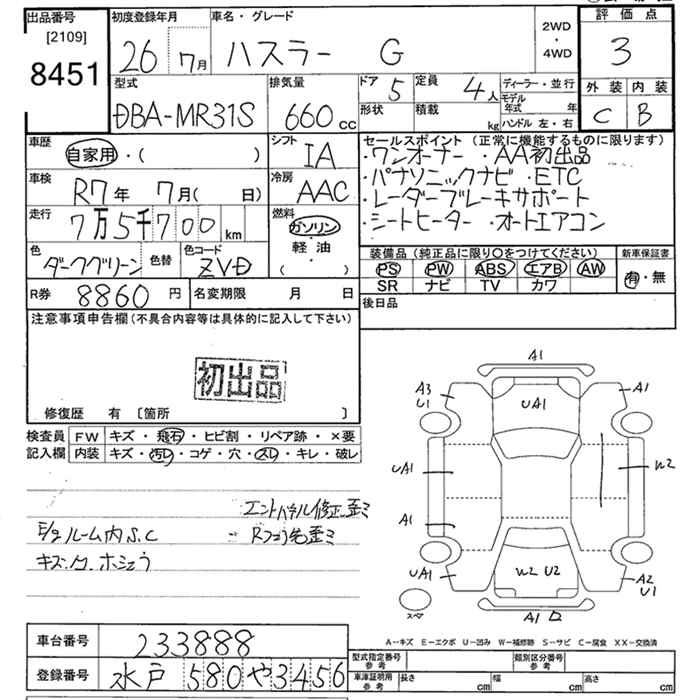 出品番号
[2109]
8451
初度登録年月
26 7月
車名・グレード
ハスラー G
2WD
・
4WD
評価点
3
外装 内装
C B
型式
DBA-MR31S
排気量
660cc
ドア 5
定員 4人
形状
積載 kg
ディーラー・並行
モデル年式 年
ハンドル 左・右
車歴
自家用・( )
シフト
IA
車検
R7年 7月( 日)
冷房
AAC
走行
7万5千700km
燃料
ガソリン
・
軽油
・
( )
色
ダークグリーン
色替
色コード
ZVD
セールスポイント (正常に機能するものに限ります)
・ワンオーナー ・AA初出品
・パナソニックナビ ・ETC
・レーダーブレーキサポート
・シートヒーター ・オートエアコン
装備品 (純正品に限り○をつけてください)
PS PW ABS エアB AW
SR ナビ TV カワ
新車保証書
有・無
R券 8860円
名変期限 月 日
後日品
注意事項申告欄 (不具合内容等は具体的に記入して下さい)
初出品
修復歴 有 [箇所 ]
検査員
記入欄
FW キズ・飛石・ヒビ割・リペア跡・×要
内装 キズ・汚レ・コゲ・穴・スレ・キレ・破レ
エントパネル修正歪ミ
ルーム内S.C
A1
A3
U1
A1
UA1
UA1
W2
A1
UA1
W2 U2
A2
U1
スペア
A1
A―キズ E―エクボ U―凹み W―補修跡 S―サビ C―腐食 XX―交換済
車台番号
233888
登録番号
水戸 580 や 3456
型式指定番号
参考
類別区分番号
参考
車庫証明用
参考
長さ cm
幅 cm
高さ cm